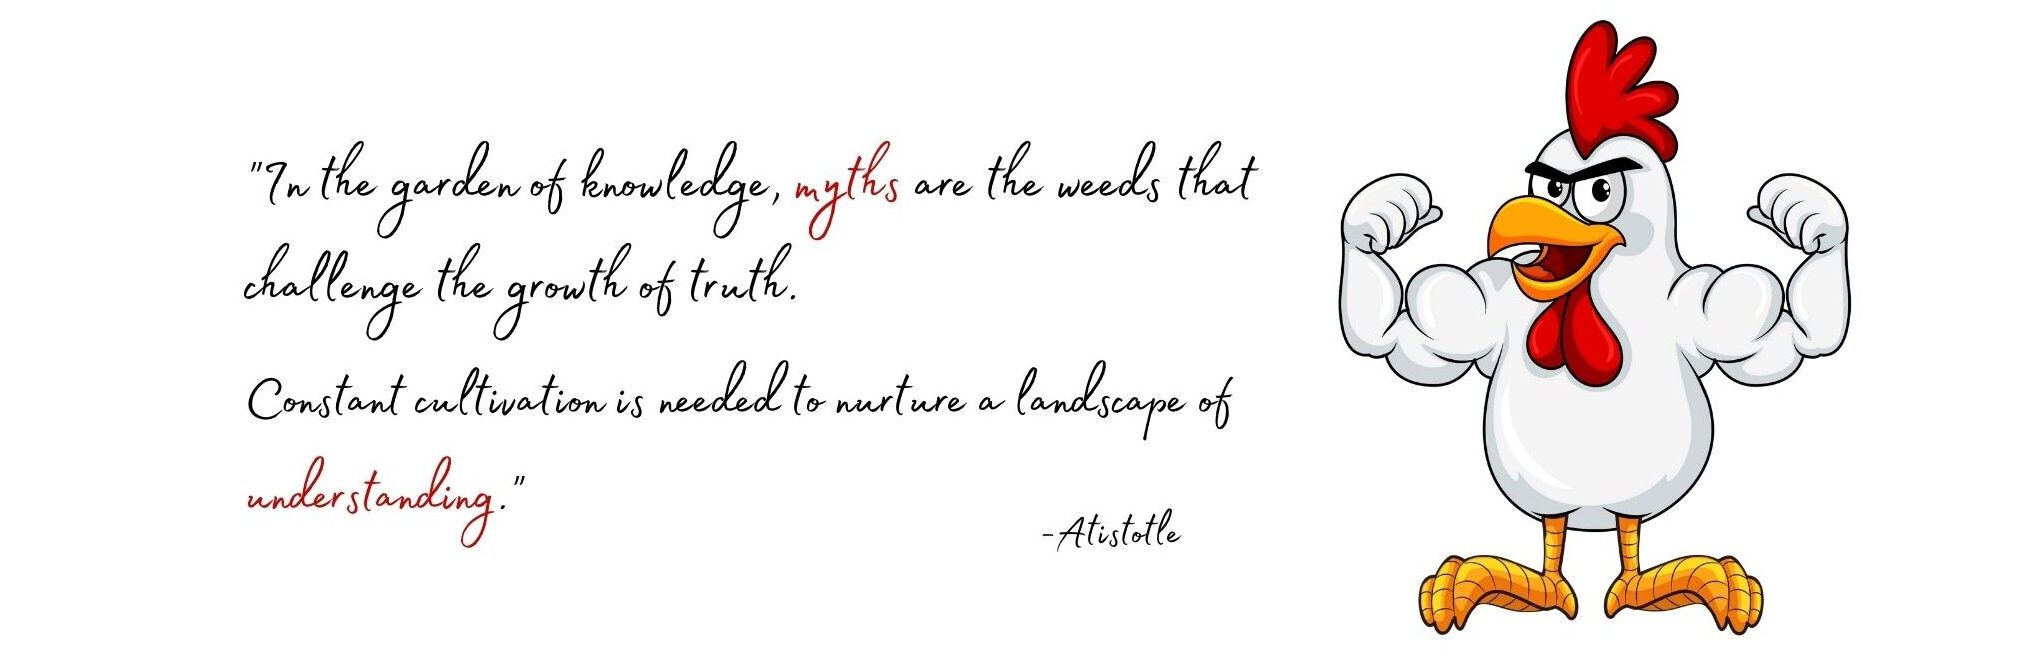 "In the garden of knowledge, myths are the weeds that
challenge the growth of truth.
Constant cultivation is needed to nurture a landscape of
understanding."
-Atistotle